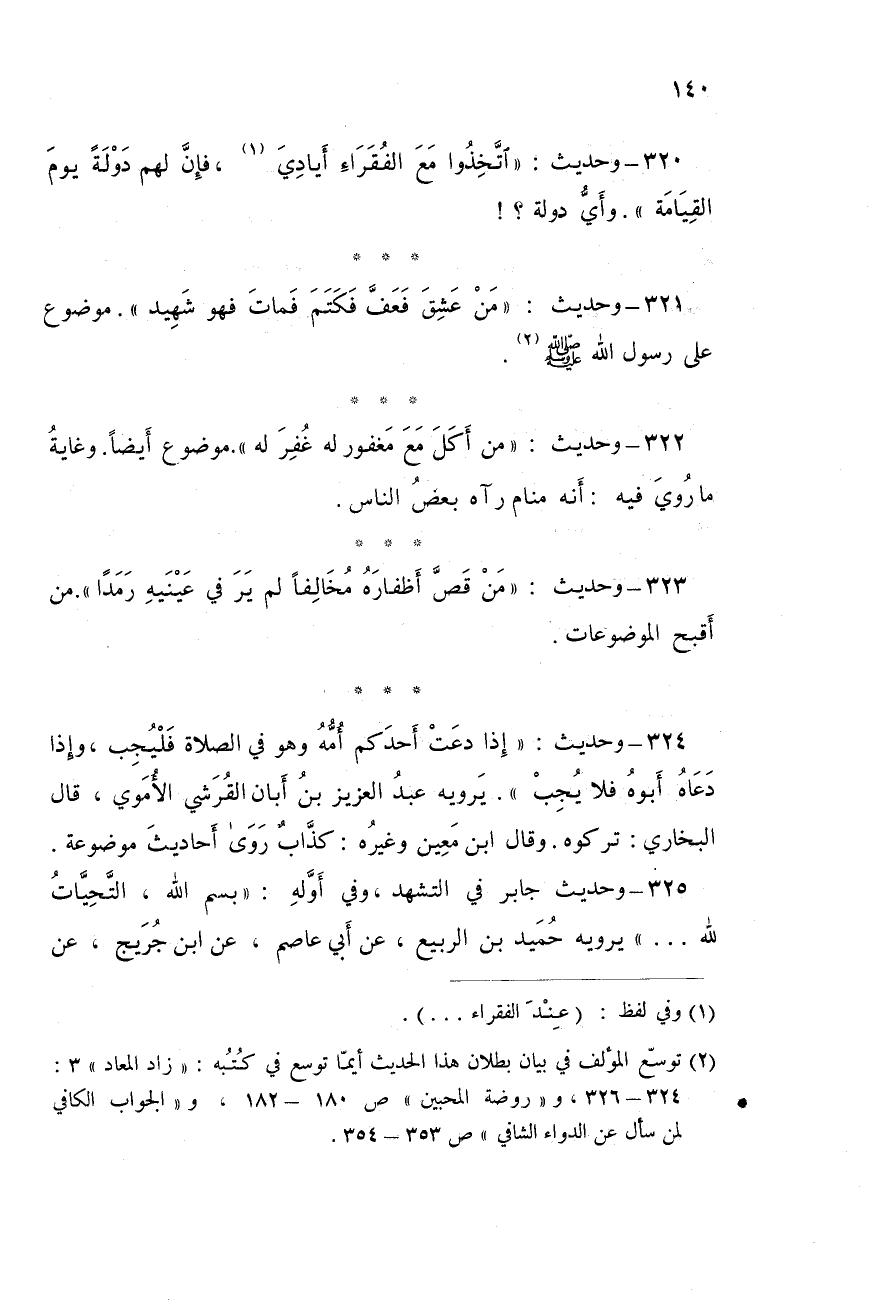 ١٤٠
٣٢٠ – وحديث : « ٱتَّخِذُوا مَعَ الفُقَرَاءِ أَيادِيَ (١) ، فإِنَّ لهم دَوْلَةً يومَ
القِيَامَة » . وأَيُّ دولة ؟ !
* * *
٣٢١ – وحديث : « مَنْ عَشِقَ فَعَفَّ فَكَتَمَ فَماتَ فهو شَهِيد » . موضوع
على رسول الله ﷺ (٢) .
* * *
٣٢٢ – وحديث : « من أَكَلَ مَعَ مَغفور له غُفِرَ له » . موضوع أَيضاً . وغايةُ
ما رُويَ فيه : أَنه منام رآه بعضُ الناس .
* * *
٣٢٣ – وحديث : « مَنْ قَصَّ أَظفارَهُ مُخَالِفاً لم يَرَ في عَيْنَيهِ رَمَدًا » . من
أَقبح الموضوعات .
* * *
٣٢٤ – وحديث : « إِذا دعَتْ أَحدَكم أُمُّهُ وهو في الصلاة فَلْيُجِب ، وإِذا
دَعَاهُ أَبوهُ فلا يُجِبْ » . يَرويه عبدُ العزيز بنُ أَبان القُرَشي الأُمَوي ، قال
البخاري : تركوه . وقال ابن مَعِين وغيرُه : كذَّابٌ رَوَىٰ أَحاديثَ موضوعة .
٣٢٥ – وحديث جابر في التشهد ، وفي أَوَّلهِ : « بسم الله ، التَّحِيَّاتُ
لله ... » يرويه حُمَيد بن الربيع ، عن أَبي عاصم ، عن ابن جُرَيج ، عن
(١) وفي لفظ : ( عِنْدَ الفقراء ... ) .
(٢) توسّع المؤلف في بيان بطلان هذا الحديث أيمّا توسع في كُتُبه : « زاد المعاد » ٣ :
٣٢٤ – ٣٢٦ ، و « روضة المحبين » ص ١٨٠ – ١٨٢ ، و « الجواب الكافي
لمن سأل عن الدواء الشافي » ص ٣٥٣ – ٣٥٤ .